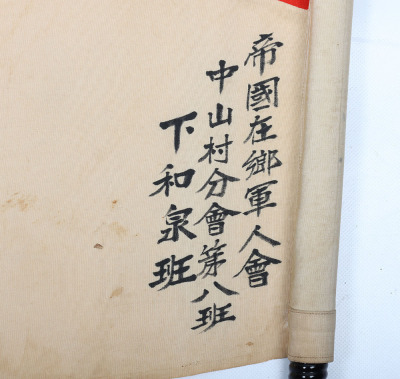 帝國在鄉軍人會
中山村分會第八班
下和泉班